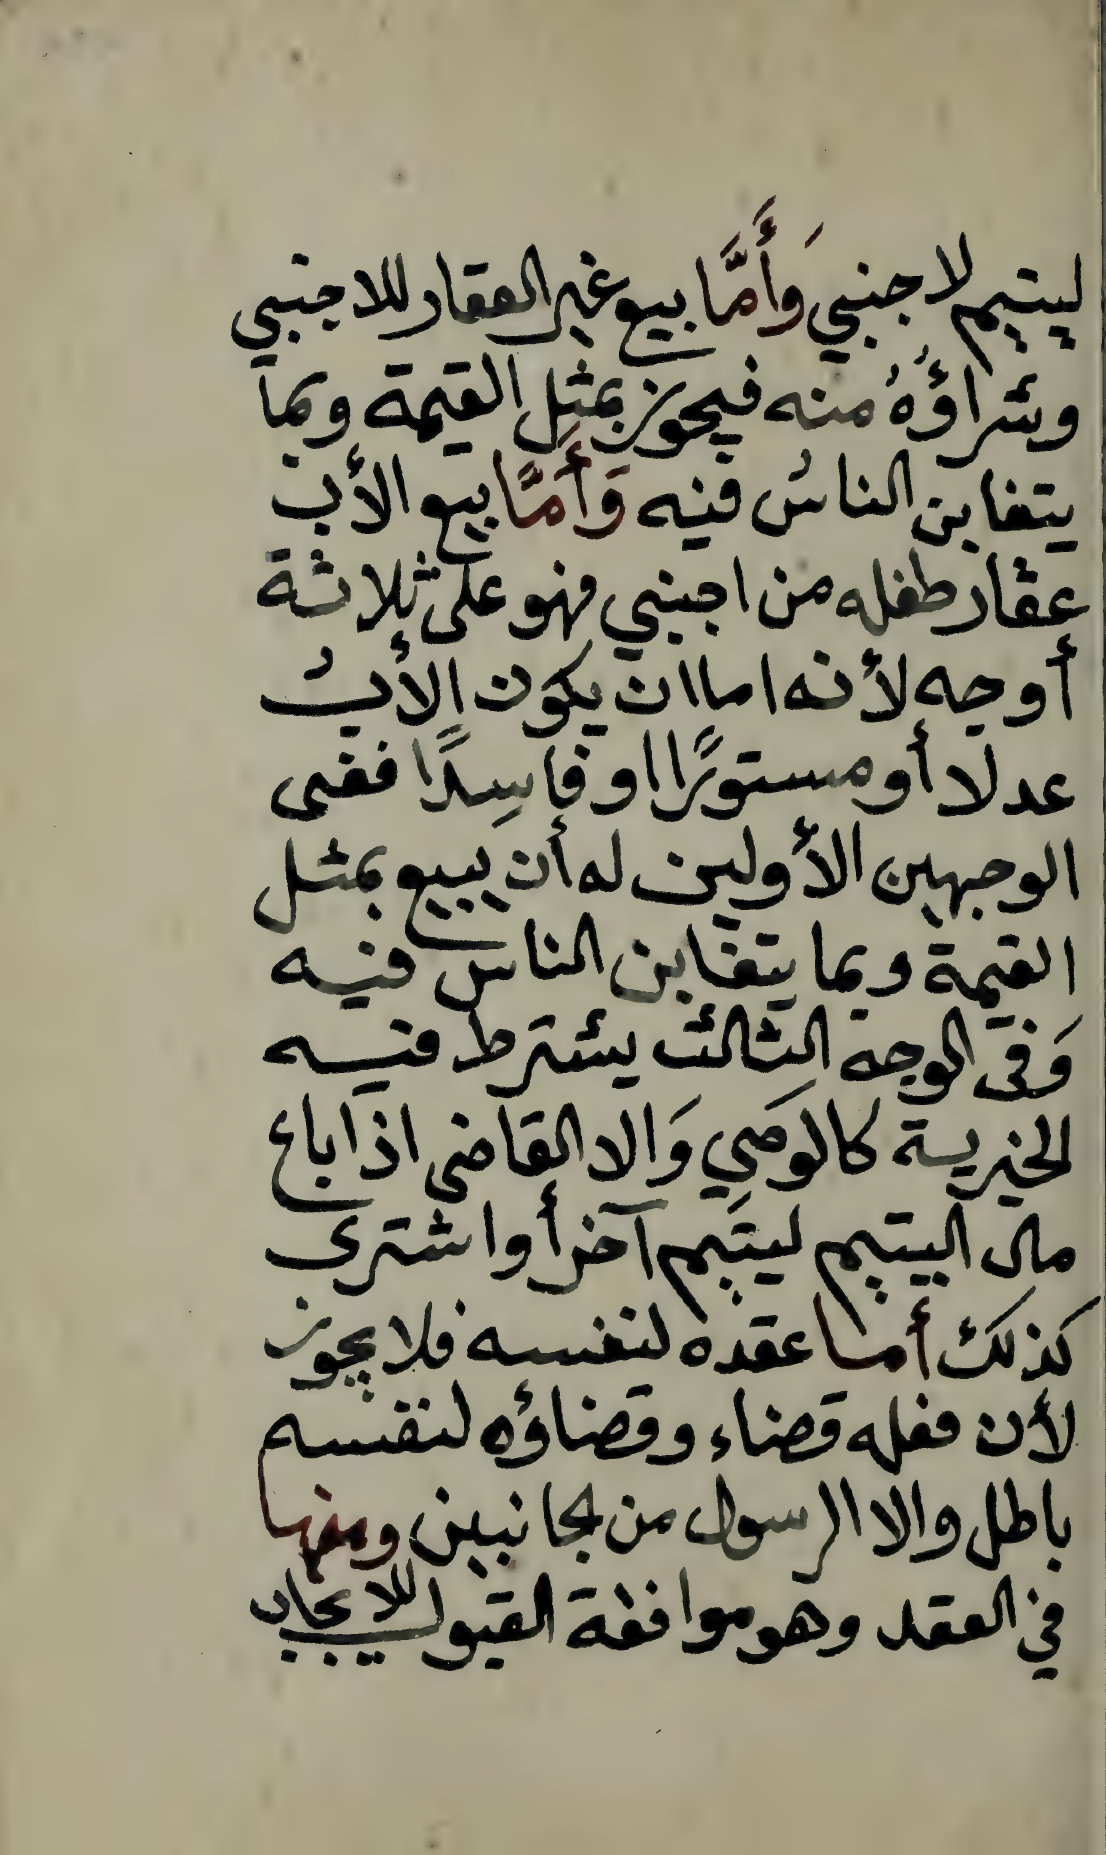 ليتيم لاجنبي وَأَمَّا بيع غير العقار للاجنبي
وشراؤُهُ منه فيجوز بمثل القيمة وبما
يتغابن الناسُ فيه وَأَمَّا بيع الأب
عقار طفله من اجنبي فهو على ثلاثة
أوجه لأنه اما ان يكون الأبُ
عدلا أو مستورًا او فاسِدًا ففى
الوجهين الأولين له أن يبيع بمثل
القيمة وبما يتغابن الناس فيه
وَفى الوجه الثالث يشترط فيه
الخيرية كالوَصِي وَالا القاضى اذا باع
مال اليتيم ليتيم آخر أو اشترى
كذلك أما عقده لنفسه فلا يجوز
لأن فعله قضاء وقضاؤه لنفسه
باطل والا الرسول من لجانبين ومنها
في العقد وهو موافقة القبول للايجاب